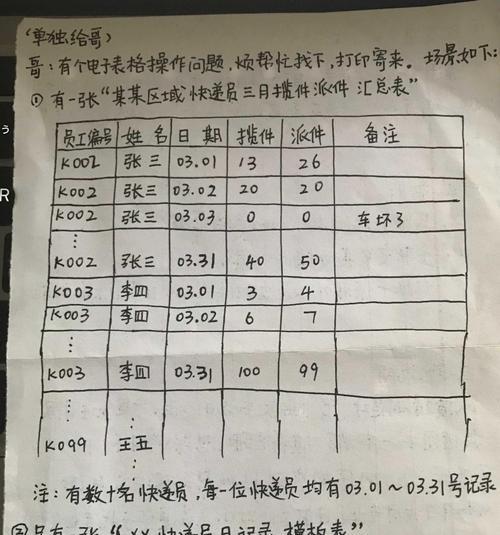 (单独给哥)
哥:有个电子表格操作问题,烦帮忙找下,打印寄来。场景如下:
① 有一张“某某区域快递员三月揽件派件 汇总表”
员工编号 姓名 日期 揽件 派件 备注
K002 张三 03.01 13 26
K002 张三 03.02 20 20
K002 张三 03.03 0 0 车坏了
⋮
K002 张三 03.31 40 50
K003 李四 03.01 3 4
K003 李四 03.02 6 7
⋮
K003 李四 03.31 100 99
⋮
K099 王五
注:有数十名快递员,每一位快递员均有03.01~03.31号记录
②只有一张“XX快递员日记录 模板表”